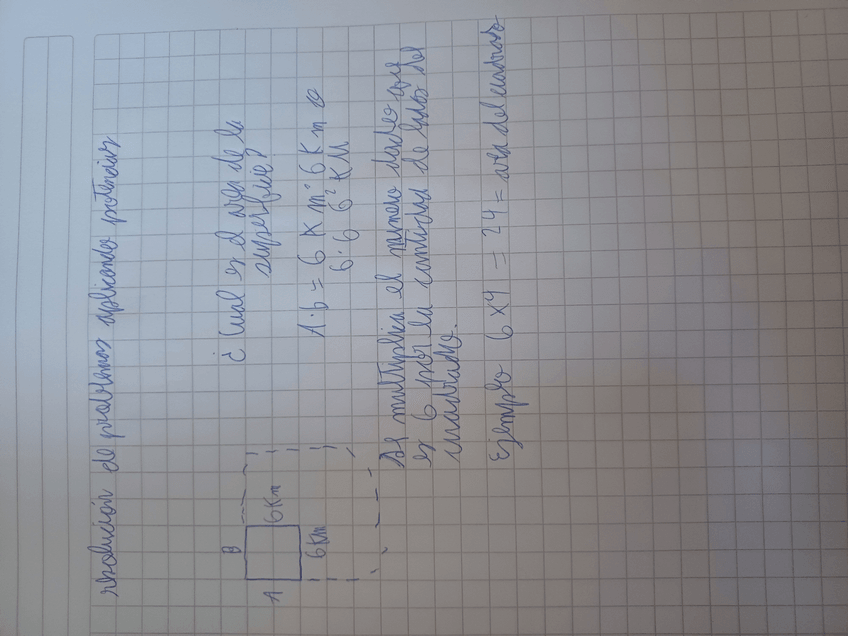 resolución de problemas aplicando potencias
A
B
6 Km
6 Km
¿Cual es el area de la
superficie?
A·b = 6 Km · 6 Km
6·6 6² KM
Se multiplica el numero dado que
es 6 por la cantidad de lados del
cuadrado.
Ejemplo 6x4 = 24 = area del cuadrado